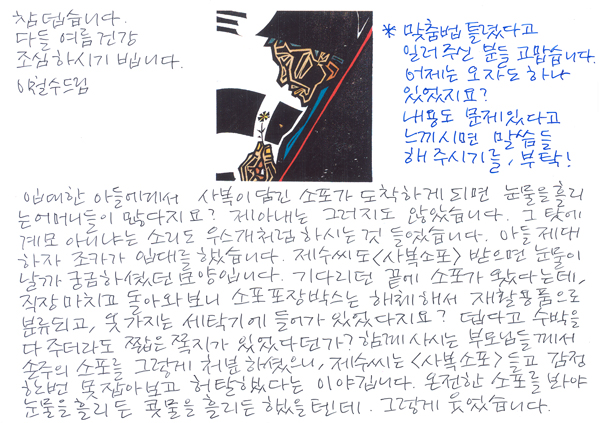 참 덥습니다.
다들 여름 건강
조심하시기 빕니다.
이철수 드림
* 맞춤법 틀렸다고
일러주신 분들 고맙습니다.
어제는 오자도 하나
있었지요?
내용도 문제있다고
느끼시면 말씀들
해 주시기를, 부탁!
입대한 아들에게서 사복이 담긴 소포가 도착하게 되면 눈물을 흘리
는 어머니들이 많다지요? 제 아내는 그러지도 않았습니다. 그 탓에
계모 아니냐는 소리도 우스개처럼 하시는 것 들었습니다. 아들 제대
하자 조카가 입대를 했습니다. 제수씨도 <사복소포> 받으면 눈물이
날까 궁금하셨던 모양입니다. 기다리던 끝에 소포가 왔다는데,
직장 마치고 돌아와보니 소포 포장박스는 해체해서 재활용품으로
분류되고, 옷가지는 세탁기에 들어가 있었다지요? 덥다고 수박을
다 주더라도 짧은 쪽지가 있었다던가? 함께 사시는 부모님들께서
손주의 소포를 그렇게 처분하셨으니, 제수씨는 <사복소포> 들고 감정
한번 못 잡아보고 허탈했다는 이야깁니다. 온전한 소포를 봐야
눈물을 흘리든 콧물을 흘리든 했을텐데. 그렇게 웃었습니다.